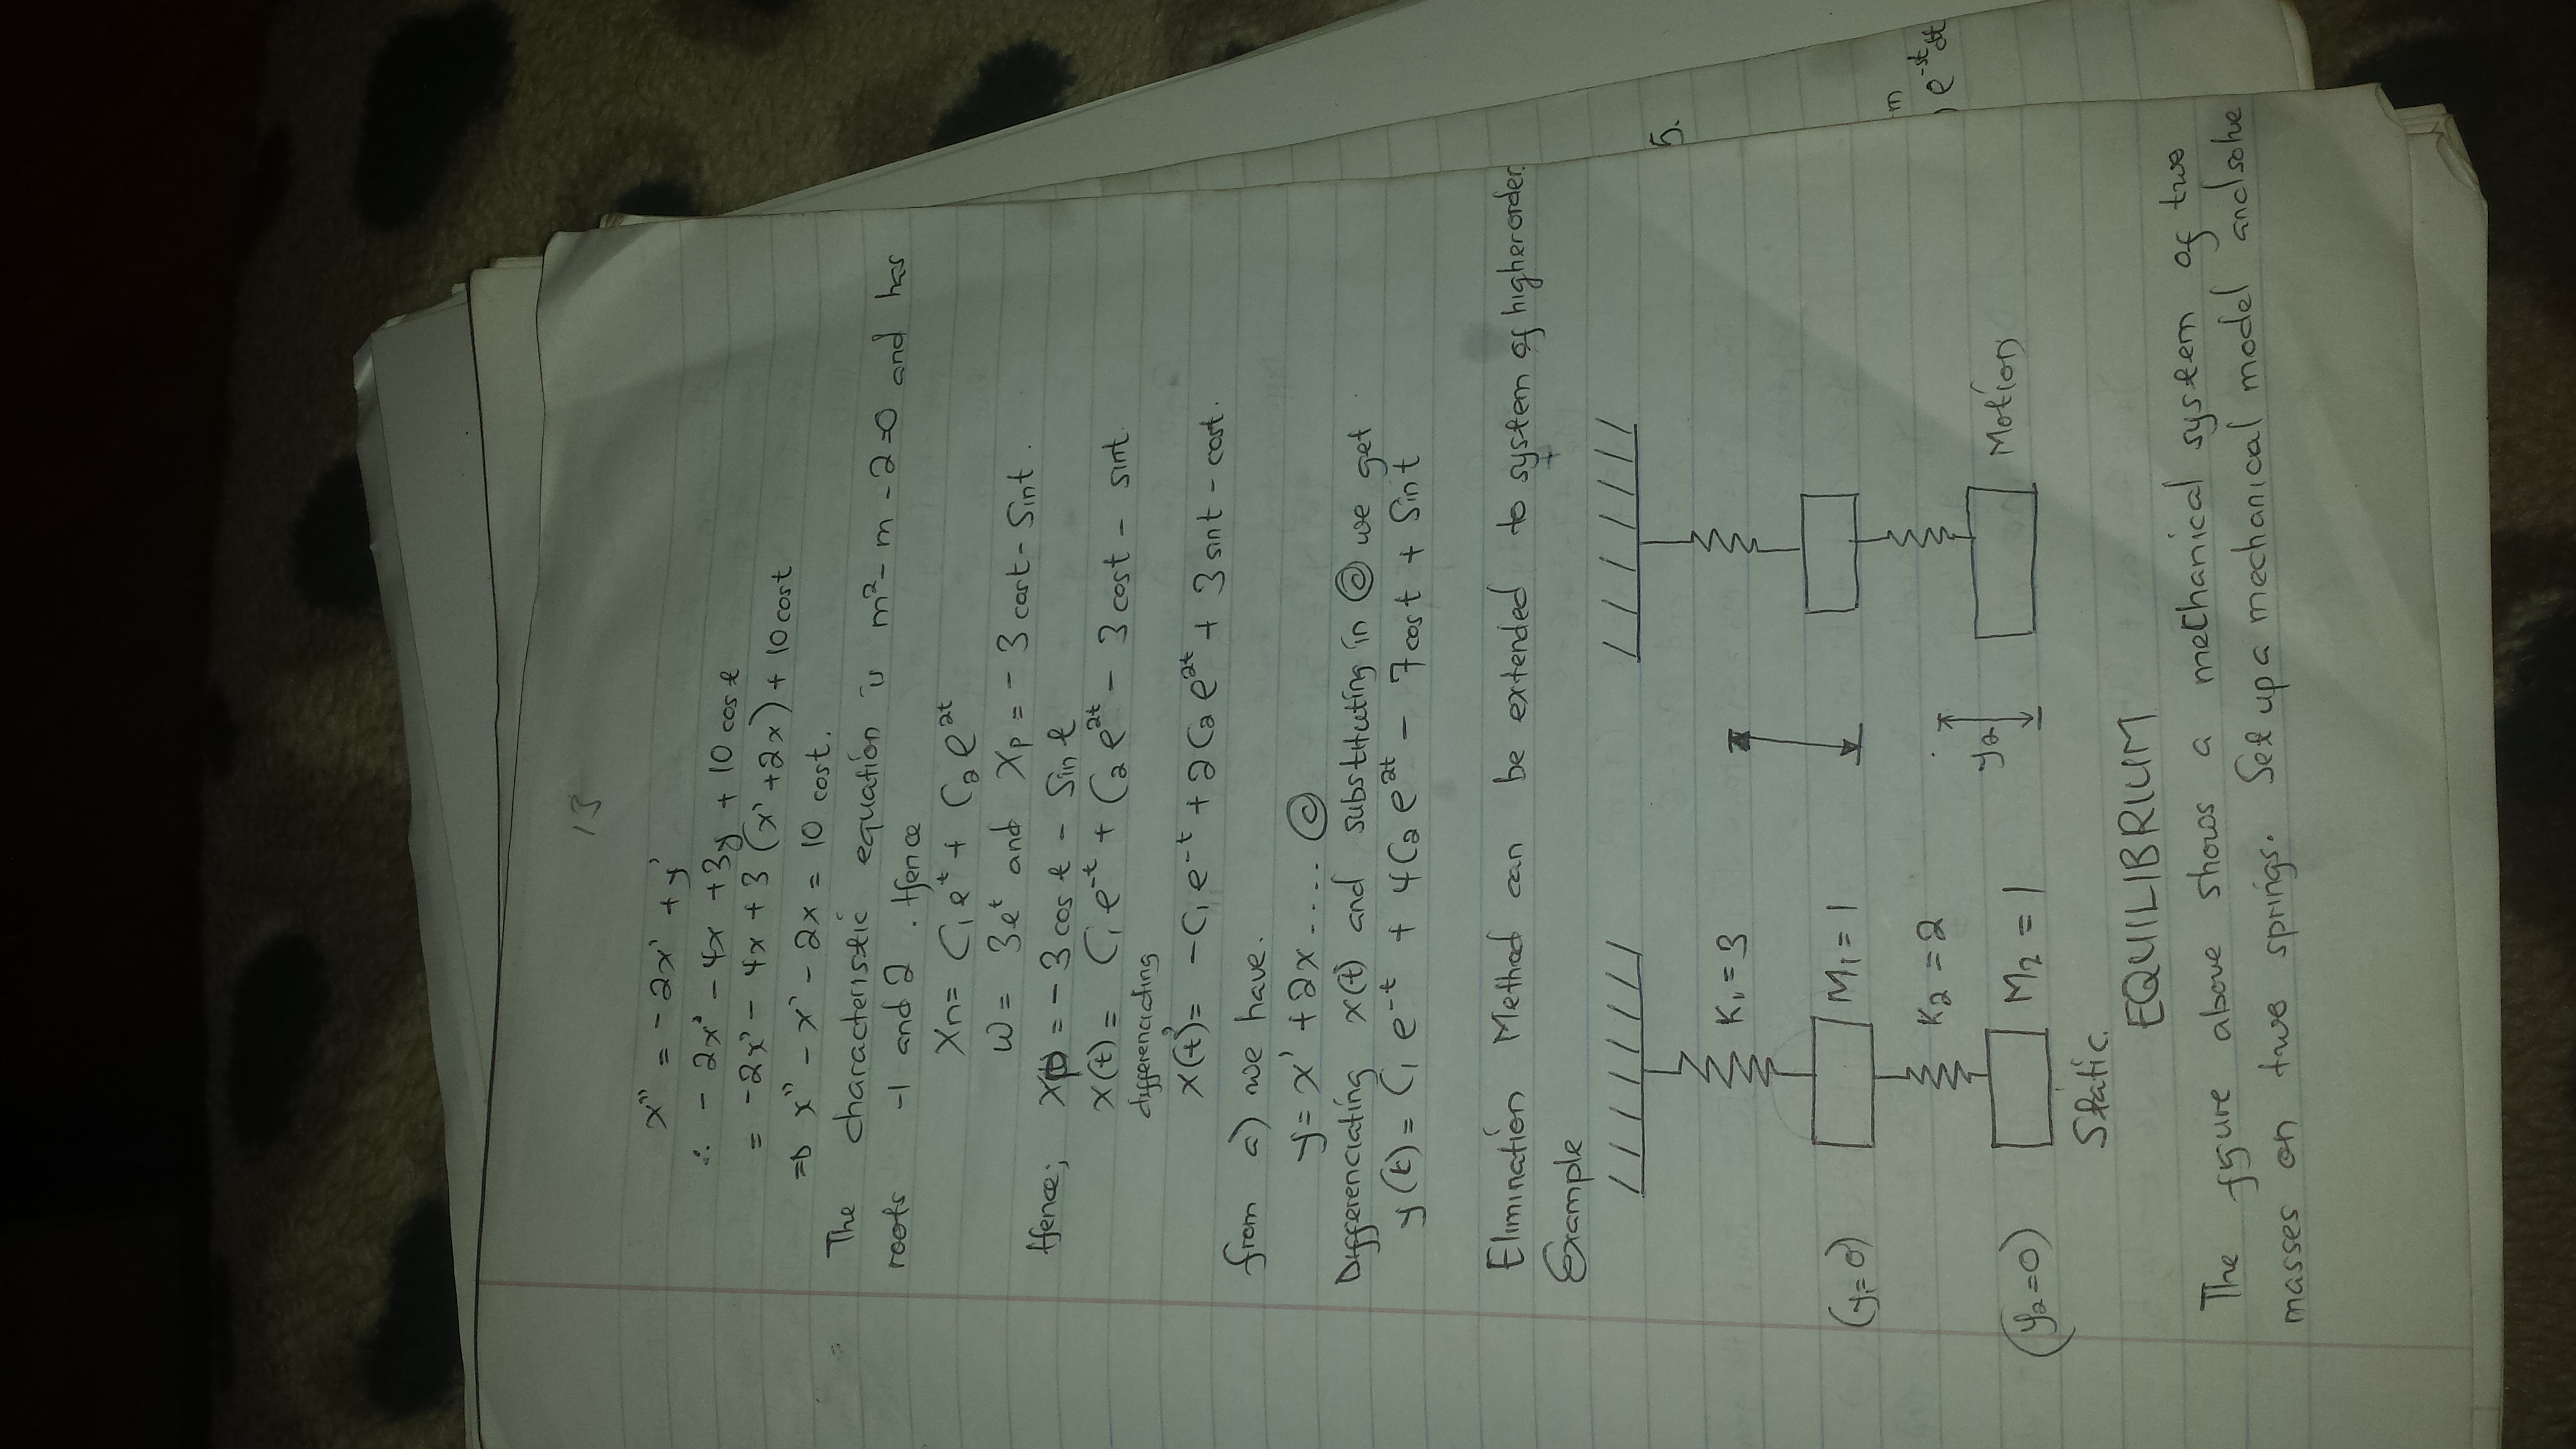 13
x'' = -2x' + y'
∴ -2x' - 4x + 3y + 10 cos t
= -2x' - 4x + 3 (x' + 2x) + 10 cost
=> x'' - x' - 2x = 10 cost.
The characteristic equation is m² - m - 2 = 0 and has
roots -1 and 2 . Hence
xn = C₁e^t + C₂e^2t
w = 3e^t and xp = -3 cost - Sint.
Hence; xp = -3 cos t - Sin t
x(t) = C₁e^-t + C₂e^2t - 3 cost - sint
differenciating
x(t)' = -C₁e^-t + 2C₂e^2t + 3 sint - cost.
from a) we have.
y = x' + 2x ..... @
Differenciating x(t) and substituting in @ we get
y(t) = C₁e^-t + 4C₂e^2t - 7cost + Sint
Elimination Method can be extended to system of higher order.
Example
K₁ = 3
(y₁ = 0) M₁ = 1
K₂ = 2
(y₂ = 0) M₂ = 1 y₂ Motion
Static
EQUILIBRIUM
The figure above shows a mechanical system of two
masses on two springs. Set up a mechanical model and solve
5.
m
) e^-st dt